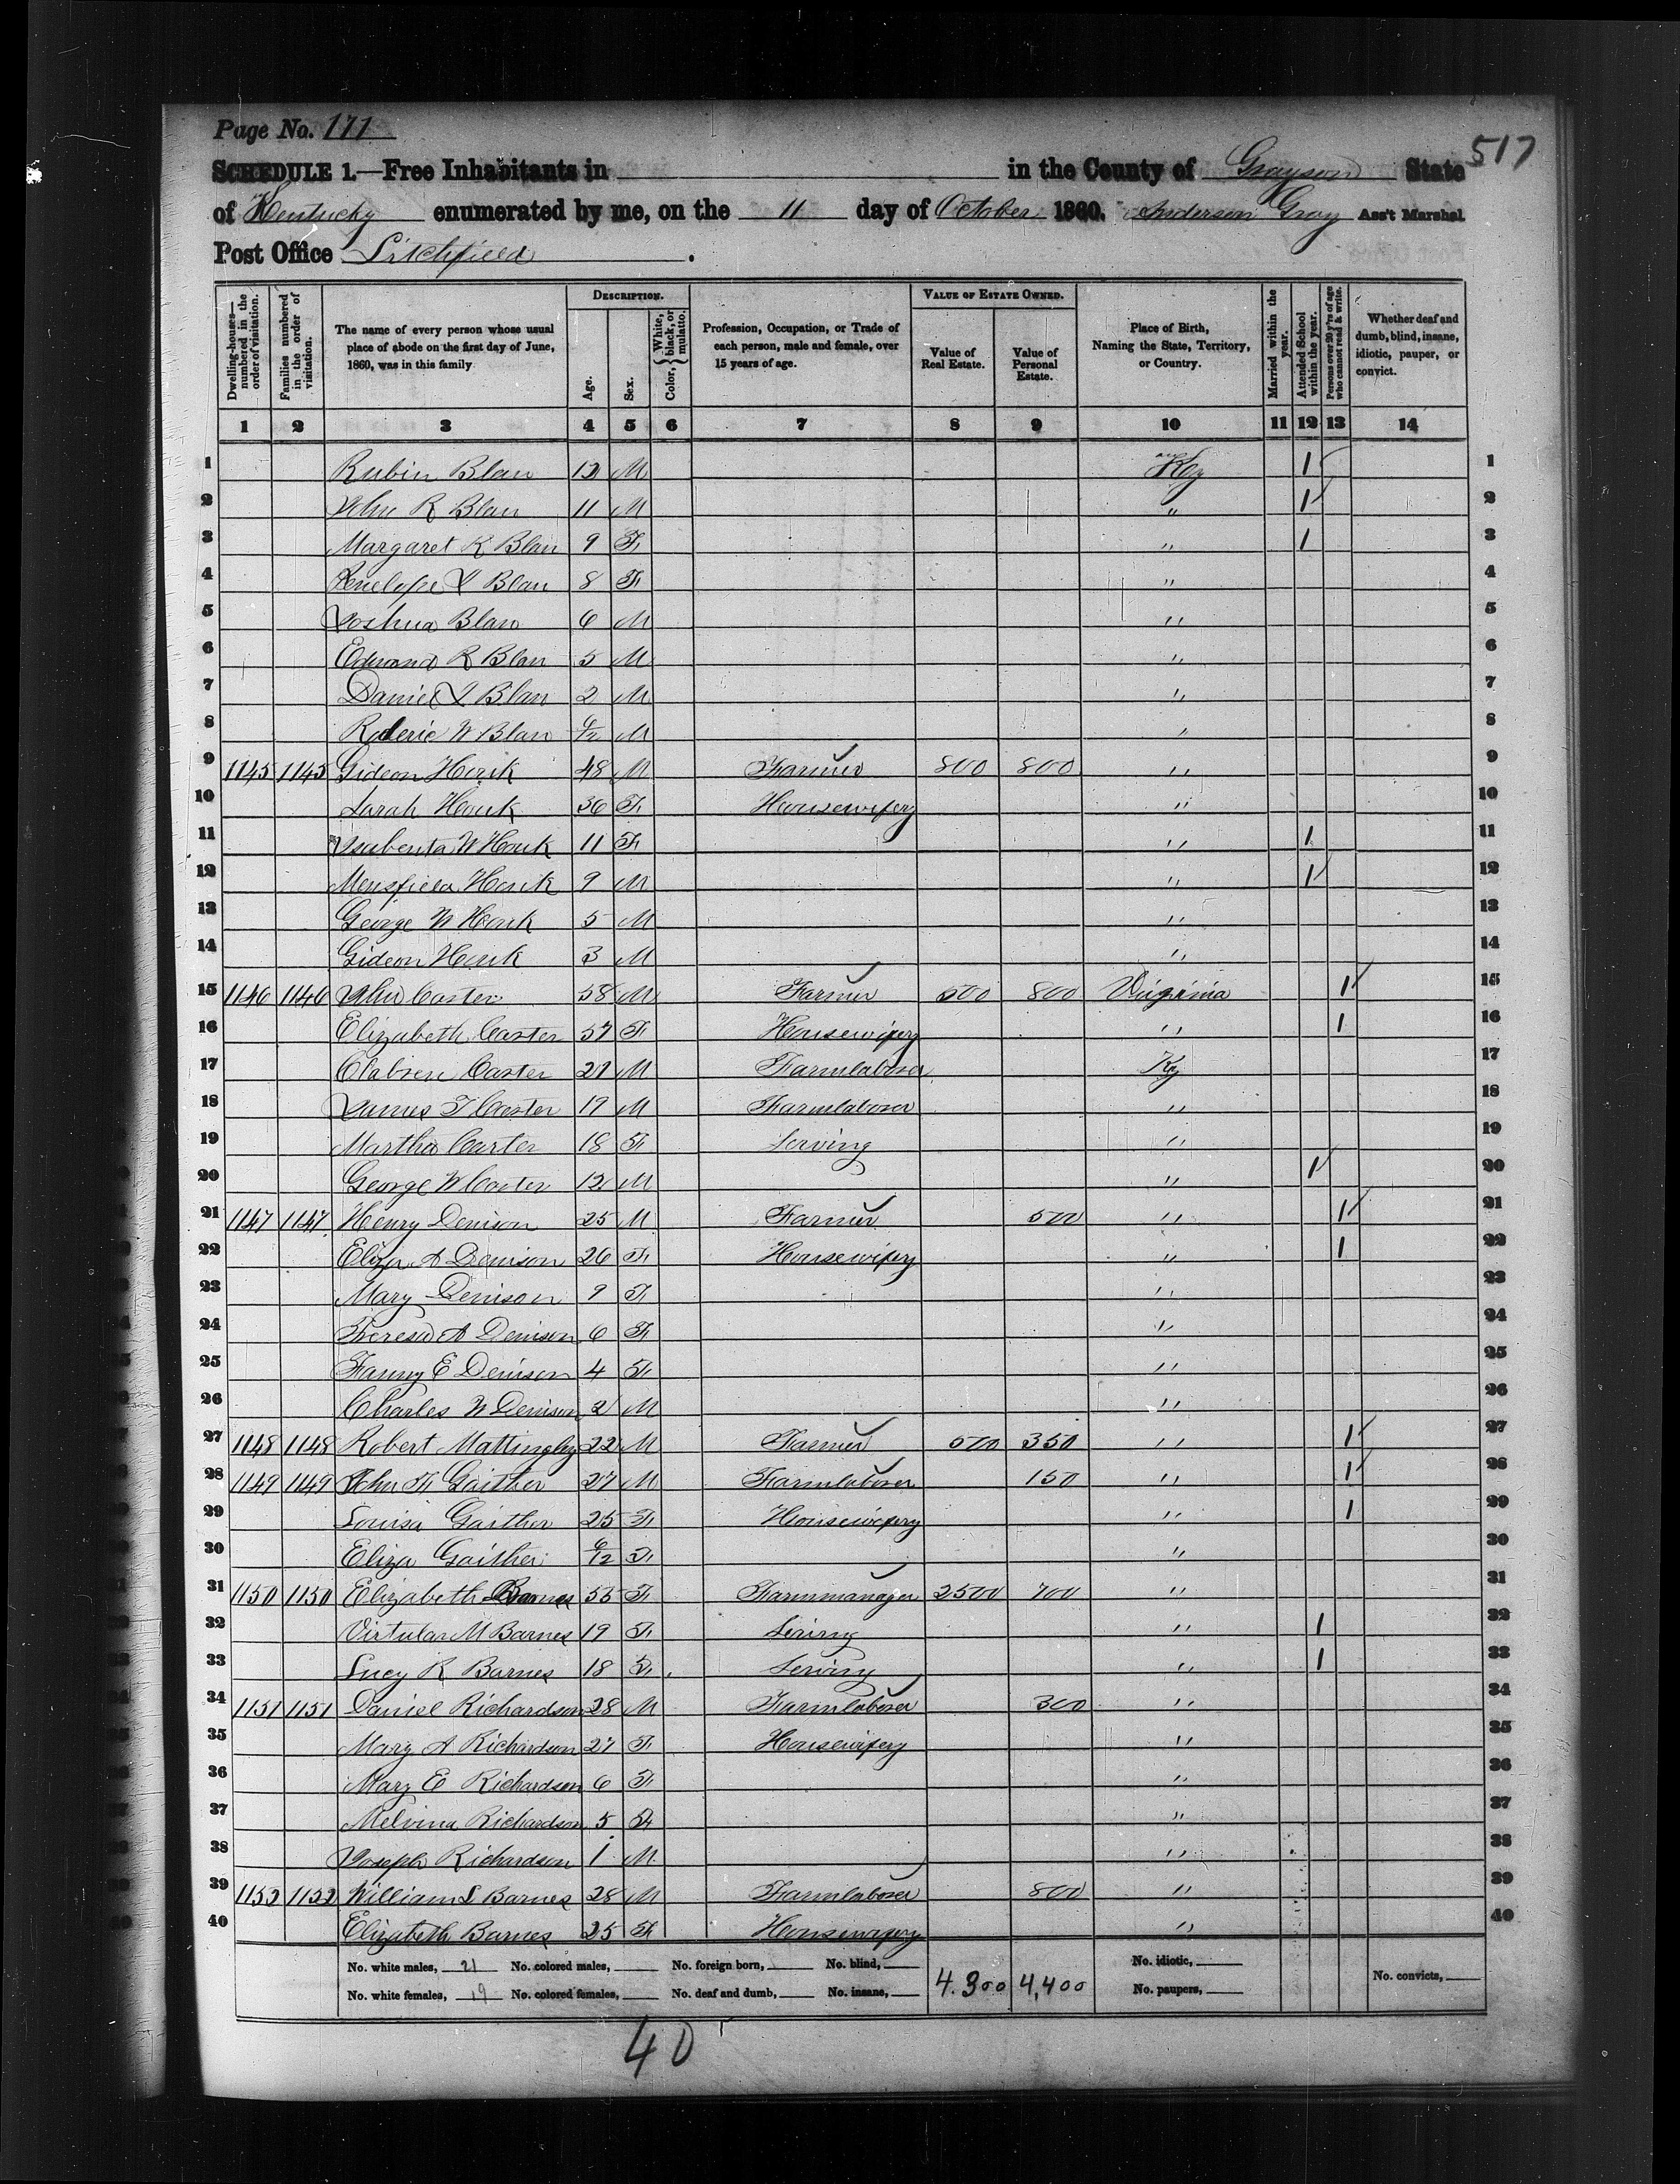 Page No. 171
517
SCHEDULE 1.—Free Inhabitants in in the County of Grayson State
of Kentucky enumerated by me, on the 11 day of October 1860. Anderson Gray Ass't Marshal
Post Office Litchfield .
Dwelling-houses—numbered in the order of visitation.
Families numbered in the order of visitation.
The name of every person whose usual place of abode on the first day of June, 1860, was in this family
DESCRIPTION.
Age.
Sex.
Color, { White, black, or mulatto. }
Profession, Occupation, or Trade of each person, male and female, over 15 years of age.
VALUE OF ESTATE OWNED.
Value of Real Estate.
Value of Personal Estate.
Place of Birth, Naming the State, Territory, or Country.
Married within the year.
Attended School within the year.
Persons over 20 y'rs of age who cannot read & write.
Whether deaf and dumb, blind, insane, idiotic, pauper, or convict.
1 2 3 4 5 6 7 8 9 10 11 12 13 14
1 Rubin Blan 12 M Ky 1 1
2 John R Blan 11 M " 1 2
3 Margaret R Blan 9 F " 1 3
4 Penelope J Blan 8 F " 4
5 Joshua Blan 6 M " 5
6 Edward R Blan 5 M " 6
7 Daniel J Blan 2 M " 7
8 Roderic W Blan M " 8
9 1145 1145 Gideon Houk 48 M Farmer 800 800 " 9
10 Sarah Houk 36 F Housewifery " 10
11 W Houk 11 F " 1 11
12 Mensfield Houk 9 M " 1 12
13 George W Houk 5 M " 13
14 Gideon Houk 3 M " 14
15 1146 1146 John Carter 58 M Farmer 500 800 Virginia 1 15
16 Elizabeth Carter 57 F Housewifery " 1 16
17 Clabren Carter 21 M Farmlaborer Ky 17
18 James T Carter 19 M Farmlaborer " 18
19 Martha Carter 18 F Serving " 19
20 George W Carter 12 M " 1 20
21 1147 1147 Henry Denison 25 M Farmer 500 " 1 21
22 Eliza A Denison 26 F Housewifery " 1 22
23 Mary Denison 9 F " 23
24 Theresa A Denison 6 F " 24
25 Fanny E Denison 4 F " 25
26 Charles W Denison 2 M " 26
27 1148 1148 Robert Mattingly 22 M Farmer 500 350 " 1 27
28 1149 1149 John H Gaither 27 M Farmlaborer 150 " 1 28
29 Louisa Gaither 25 F Housewifery " 1 29
30 Eliza Gaither 6/12 F " 30
31 1150 1150 Elizabeth Barnes 55 F Farmmanager 2500 700 " 31
32 Virtular M Barnes 19 F Serving " 1 32
33 Lucy R Barnes 18 F Serving " 1 33
34 1151 1151 Daniel Richardson 28 M Farmlaborer 300 " 34
35 Mary A Richardson 27 F Housewifery " 35
36 Mary E Richardson 6 F " 36
37 Melvina Richardson 5 F " 37
38 Joseph Richardson 1 M " 38
39 1152 1152 William L Barnes 28 M Farmlaborer 800 " 39
40 Elizabeth Barnes 25 F Housewifery " 40
No. white males, 21 No. colored males, No. foreign born, No. blind, 4.300 4,400 No. idiotic, No. convicts,
No. white females, 19 No. colored females, No. deaf and dumb, No. insane, No. paupers,
40